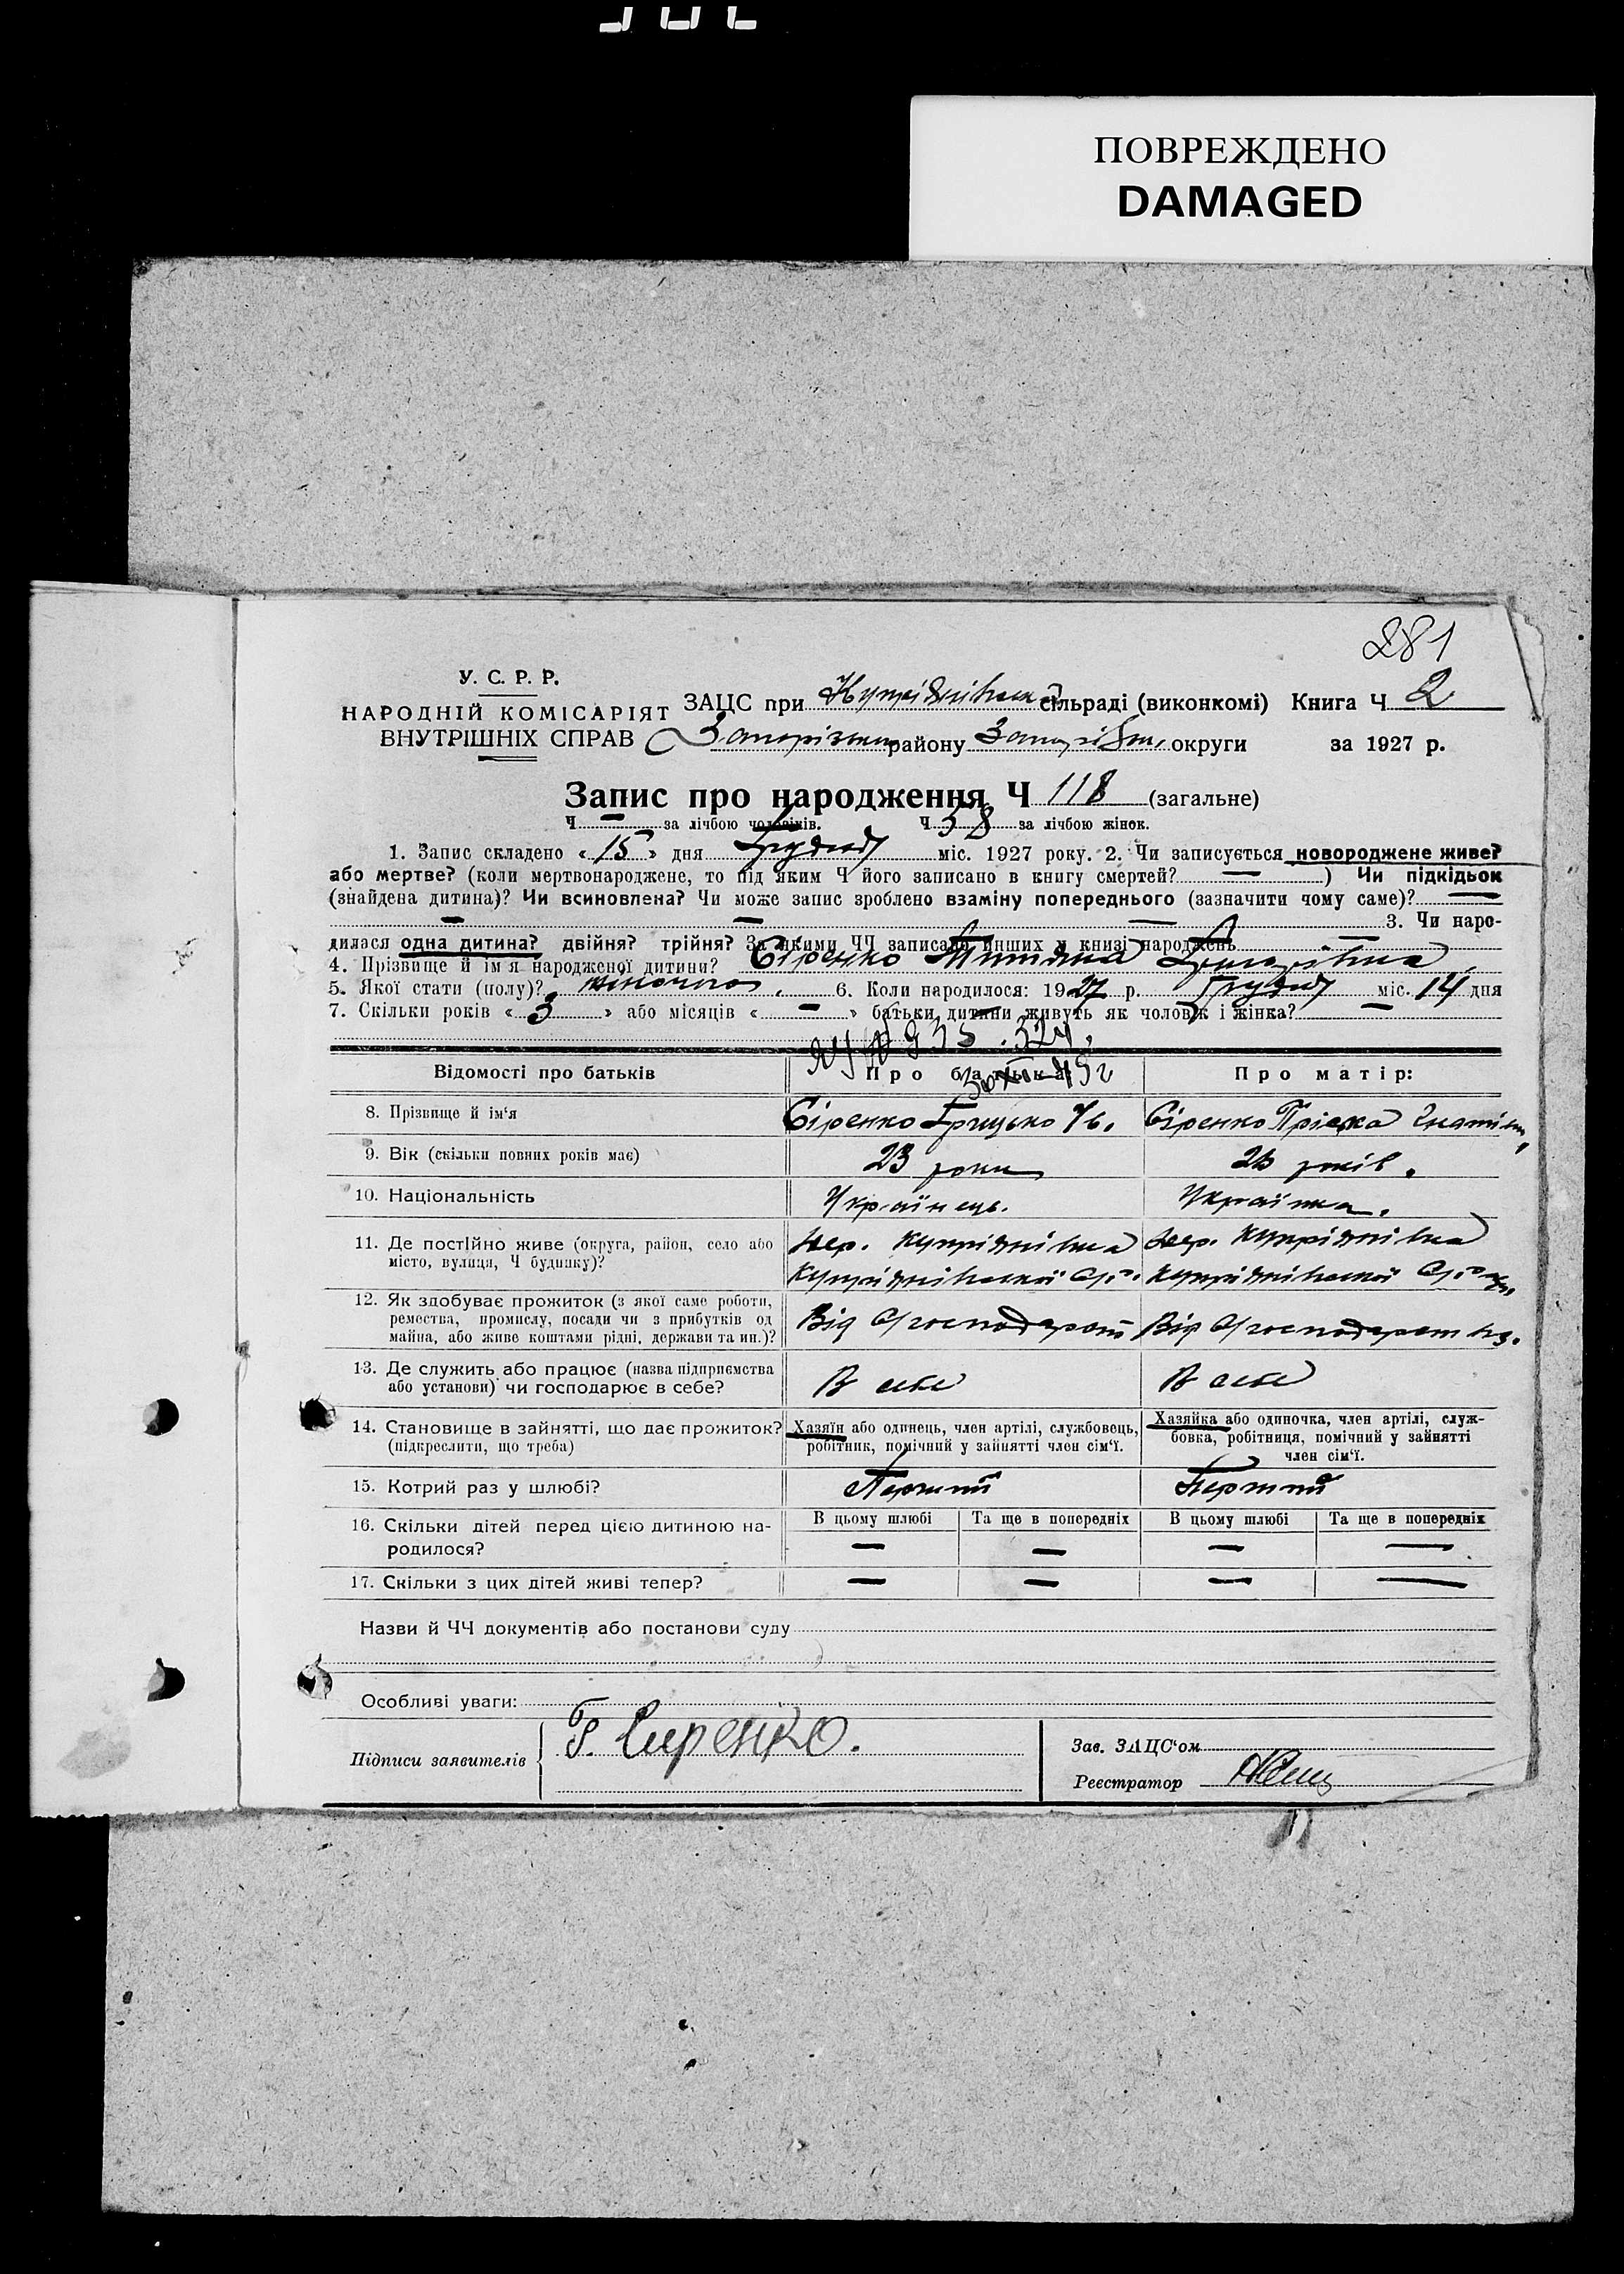 ПОВРЕЖДЕНО
DAMAGED
281
У. С. Р. Р.
НАРОДНІЙ КОМІСАРІЯТ
ВНУТРІШНІХ СПРАВ
ЗАЦС при сільраді (виконкомі) Книга Ч 2
району округи за 1927 р.
Запис про народження Ч 118 (загальне)
Ч — за лічбою чоловіків. Ч 58 за лічбою жінок.
1. Запис складено «15» дня Грудня міс. 1927 року. 2. Чи записується новороджене живе?
або мертве? (коли мертвонароджене, то під яким Ч його записано в книгу смертей? — ) Чи підкідьок
(знайдена дитина)? Чи всиновлена? Чи може запис зроблено взаміну попереднього (зазначити чому саме)? —
— — — 3. Чи наро-
дилася одна дитина? двійня? трійня? За якими ЧЧ записано инших у книзі народжень —
4. Прізвище й ім'я народженої дитини? Сіренко Титяна Григорівна
5. Якої стати (полу)? жіночого. 6. Коли народилося: 1927 р. Грудня міс. 14 дня
7. Скільки років «3» або місяців « — » батьки дитини живуть як чоловік і жінка? —
Відомості про батьків
Про батька:
Про матір:
8. Прізвище й ім'я
Сіренко Грицько
Сіренко Пріська
9. Вік (скільки повних років має)
23 роки
23 років.
10. Національність
Українець.
Українка.
11. Де постійно живе (округа, район, село або
місто, вулиця, Ч будинку)?
Хер. Купріянівка
Хер. Купріянівка
Купріянівської
Купріянівської
12. Як здобуває прожиток (з якої саме роботи,
ремества, промислу, посади чи з прибутків од
майна, або живе коштами рідні, держави та ин.)?
Від
Від
13. Де служить або працює (назва підприємства
або установи) чи господарює в себе?
В себе
В себе
14. Становище в зайнятті, що дає прожиток?
(підкреслити, що треба)
Хазяїн або одинець, член артілі, службовець,
робітник, помічний у зайнятті член сім'ї.
Хазяйка або одиночка, член артілі, служ-
бовка, робітниця, помічний у зайнятті
член сім'ї.
15. Котрий раз у шлюбі?
Перший
Перший
16. Скільки дітей перед цією дитиною на-
родилося?
В цьому шлюбі
Та ще в попередніх
В цьому шлюбі
Та ще в попередніх
— — — —
17. Скільки з цих дітей живі тепер?
— — — —
Назви й ЧЧ документів або постанови суду
Особливі уваги:
Підписи заявителів
Г. Сиренко.
Зав. ЗАЦС'ом
Реєстратор